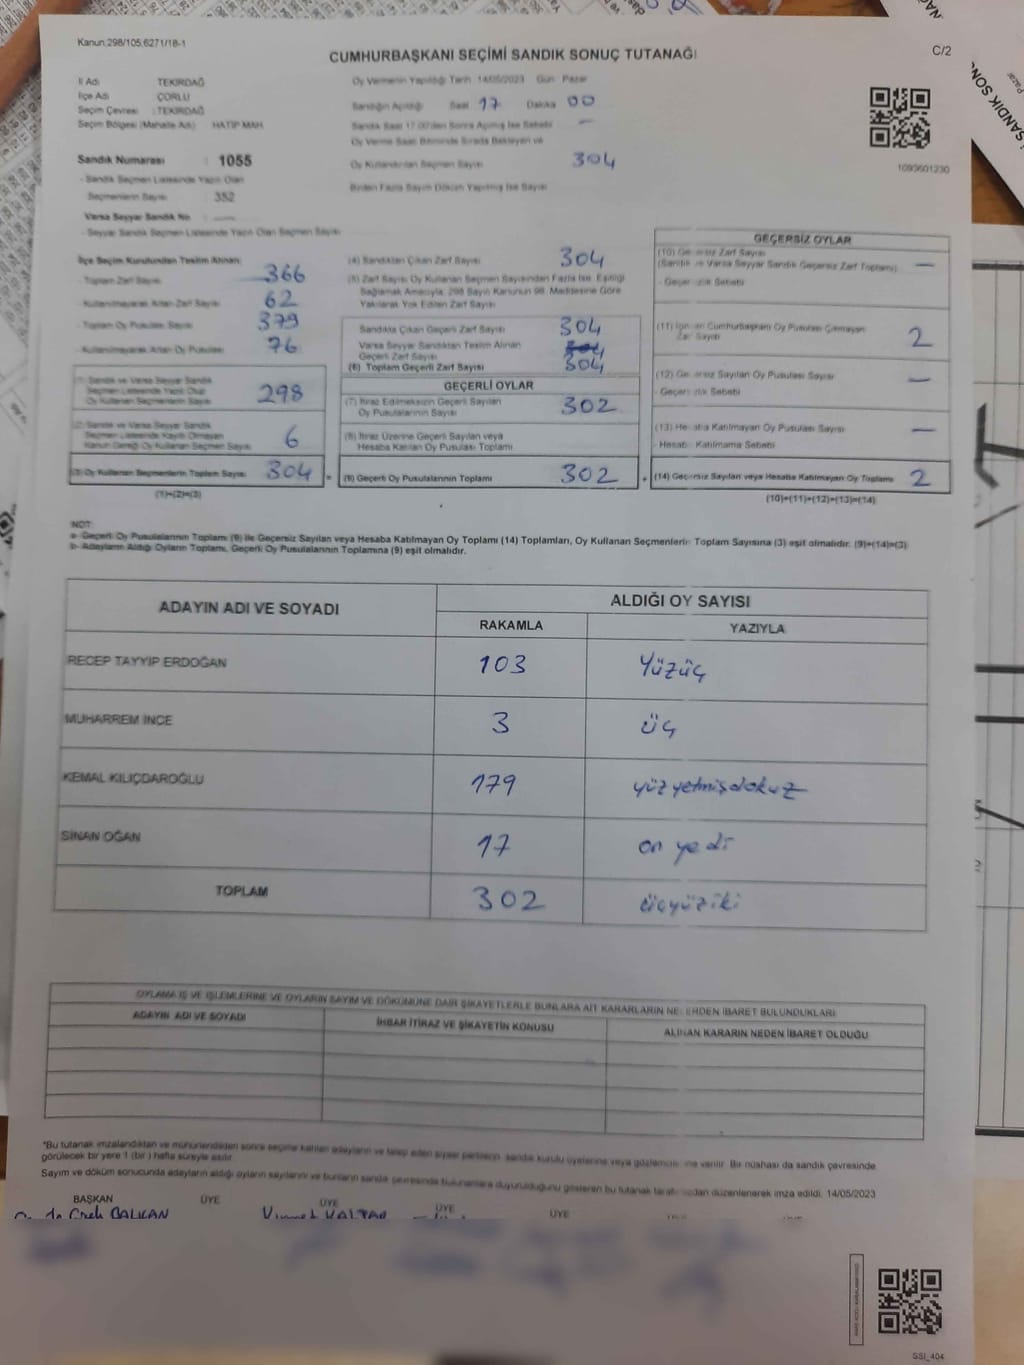 Kanun,298/105,6271/18-1
C/2
CUMHURBAŞKANI SEÇİMİ SANDIK SONUÇ TUTANAĞI
İl Adı TEKİRDAĞ
İlçe Adı ÇORLU
Seçim Çevresi : TEKİRDAĞ
Seçim Bölgesi (Mahalle Adı) HATİP MAH
Sandık Numarası : 1055
- Sandık Seçmen Listesinde Yazılı Olan
Seçmenlerin Sayısı : 352
Varsa Seyyar Sandık No
- Seyyar Sandık Seçmen Listesinde Yazılı Olan Seçmen Sayısı
Oy Vermenin Yapıldığı Tarih 14/05/2023 Gün Pazar
Sandığın Açıldığı Saat 17 Dakika 00
Sandık Saat 17.00'den Sonra Açılmış İse Sebebi -
Oy Verme Saati Bitiminde Sırada Bekleyen ve
Oy Kullandırılan Seçmen Sayısı 304
Birden Fazla Sayım Döküm Yapılmış İse Sayısı
1093601230
İlçe Seçim Kurulundan Teslim Alınan:
- Toplam Zarf Sayısı 366
- Kullanılmayarak Artan Zarf Sayısı 62
- Toplam Oy Pusulası Sayısı 379
- Kullanılmayarak Artan Oy Pusulası 76
(1) Sandık ve Varsa Seyyar Sandık
Seçmen Listesinde Yazılı Olup
Oy Kullanan Seçmenlerin Sayısı 298
(2) Sandık ve Varsa Seyyar Sandık
Seçmen Listesinde Kayıtlı Olmayan
Kanun Gereği Oy Kullanan Seçmen Sayısı 6
(3) Oy Kullanan Seçmenlerin Toplam Sayısı 304
(1)+(2)=(3)
(4) Sandıktan Çıkan Zarf Sayısı 304
(5) Zarf Sayısı Oy Kullanan Seçmen Sayısından Fazla İse, Eşitliği
Sağlamak Amacıyla, 298 Sayılı Kanunun 98. Maddesine Göre
Yakılarak Yok Edilen Zarf Sayısı
Sandıkta Çıkan Geçerli Zarf Sayısı 304
Varsa Seyyar Sandıktan Teslim Alınan
Geçerli Zarf Sayısı 304
(6) Toplam Geçerli Zarf Sayısı 304
GEÇERLİ OYLAR
(7) İtiraz Edilmeksizin Geçerli Sayılan
Oy Pusulalarının Sayısı 302
(8) İtiraz Üzerine Geçerli Sayılan veya
Hesaba Katılan Oy Pusulası Toplamı
(9) Geçerli Oy Pusulalarının Toplamı 302
GEÇERSİZ OYLAR
(10) Geçersiz Zarf Sayısı
(Sandık ve Varsa Seyyar Sandık Geçersiz Zarf Toplamı) -
- Geçersizlik Sebebi
(11) İçinden Cumhurbaşkanı Oy Pusulası Çıkmayan
Zarf Sayısı 2
(12) Geçersiz Sayılan Oy Pusulası Sayısı -
- Geçersizlik Sebebi
(13) Hesaba Katılmayan Oy Pusulası Sayısı -
- Hesaba Katılmama Sebebi
(14) Geçersiz Sayılan veya Hesaba Katılmayan Oy Toplamı 2
(10)+(11)+(12)+(13)=(14)
NOT:
a- Geçerli Oy Pusulalarının Toplamı (9) ile Geçersiz Sayılan veya Hesaba Katılmayan Oy Toplamı (14) Toplamları, Oy Kullanan Seçmenlerin Toplam Sayısına (3) eşit olmalıdır. (9)+(14)=(3)
b- Adayların Aldığı Oyların Toplamı, Geçerli Oy Pusulalarının Toplamına (9) eşit olmalıdır.
ADAYIN ADI VE SOYADI ALDIĞI OY SAYISI
RAKAMLA YAZIYLA
RECEP TAYYİP ERDOĞAN 103 Yüzüç
MUHARREM İNCE 3 üç
KEMAL KILIÇDAROĞLU 179 yüz yetmişdokuz
SİNAN OĞAN 17 on yedi
TOPLAM 302 üçyüziki
OYLAMA İŞ VE İŞLEMLERİNE VE OYLARIN SAYIM VE DÖKÜMÜNE DAİR ŞİKAYETLERLE BUNLARA AİT KARARLARIN NELERDEN İBARET BULUNDUKLARI
ADAYIN ADI VE SOYADI İHBAR İTİRAZ VE ŞİKAYETİN KONUSU ALINAN KARARIN NEDEN İBARET OLDUĞU
*Bu tutanak imzalandıktan ve mühürlendikten sonra seçime katılan adayların ve talep eden siyasi partilerin sandık kurulu üyelerine veya gözlemcilerine verilir. Bir nüshası da sandık çevresinde
görülecek bir yere 1 (bir ) hafta süreyle asılır.
Sayım ve döküm sonucunda adayların aldığı oyların sayılarını ve bunların sandık çevresinde bulunanlara duyurulduğunu gösteren bu tutanak tarafımızdan düzenlenerek imza edildi. 14/05/2023
BAŞKAN ÜYE ÜYE ÜYE ÜYE
SSI_404